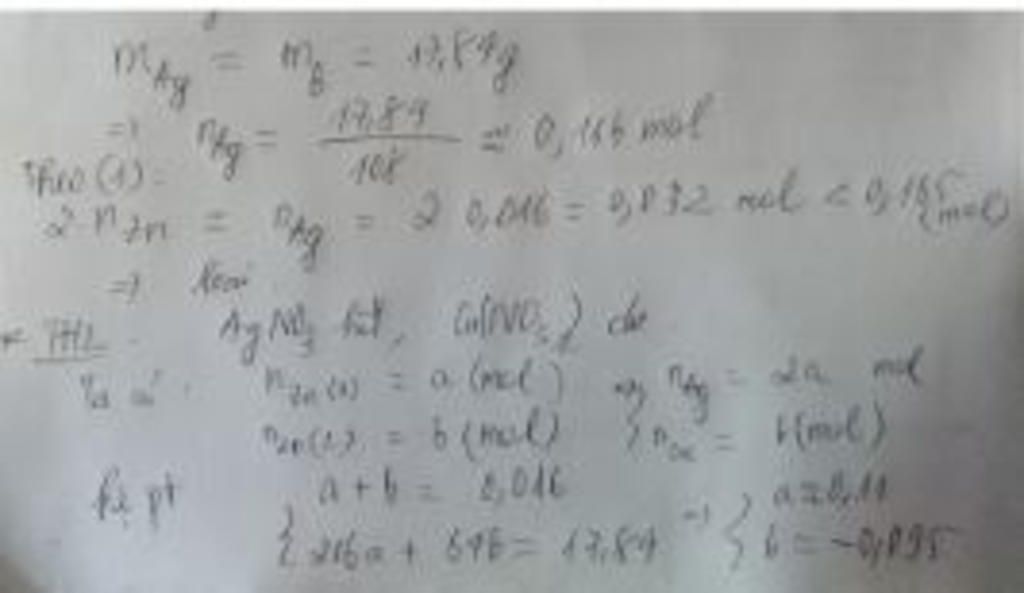 m_Ag = m_B = 17,84g
=> n_Ag = 17,84 / 108 ≈ 0,165 mol
Theo (1).
2 n_Zn = n_Ag = 2 0,016 = 0,032 mol < 0,165 (mol)
=> loại
* TH2. AgNO3 hết, Cu(NO3)2 dư
Ta có: n_Zn(1) = a (mol) => n_Ag = 2a mol
n_Zn(2) = b (mol) n_Cu = b (mol)
hệ pt { a + b = 0,016 a = 0,11
216a + 64b = 17,84 => { b = -0,095